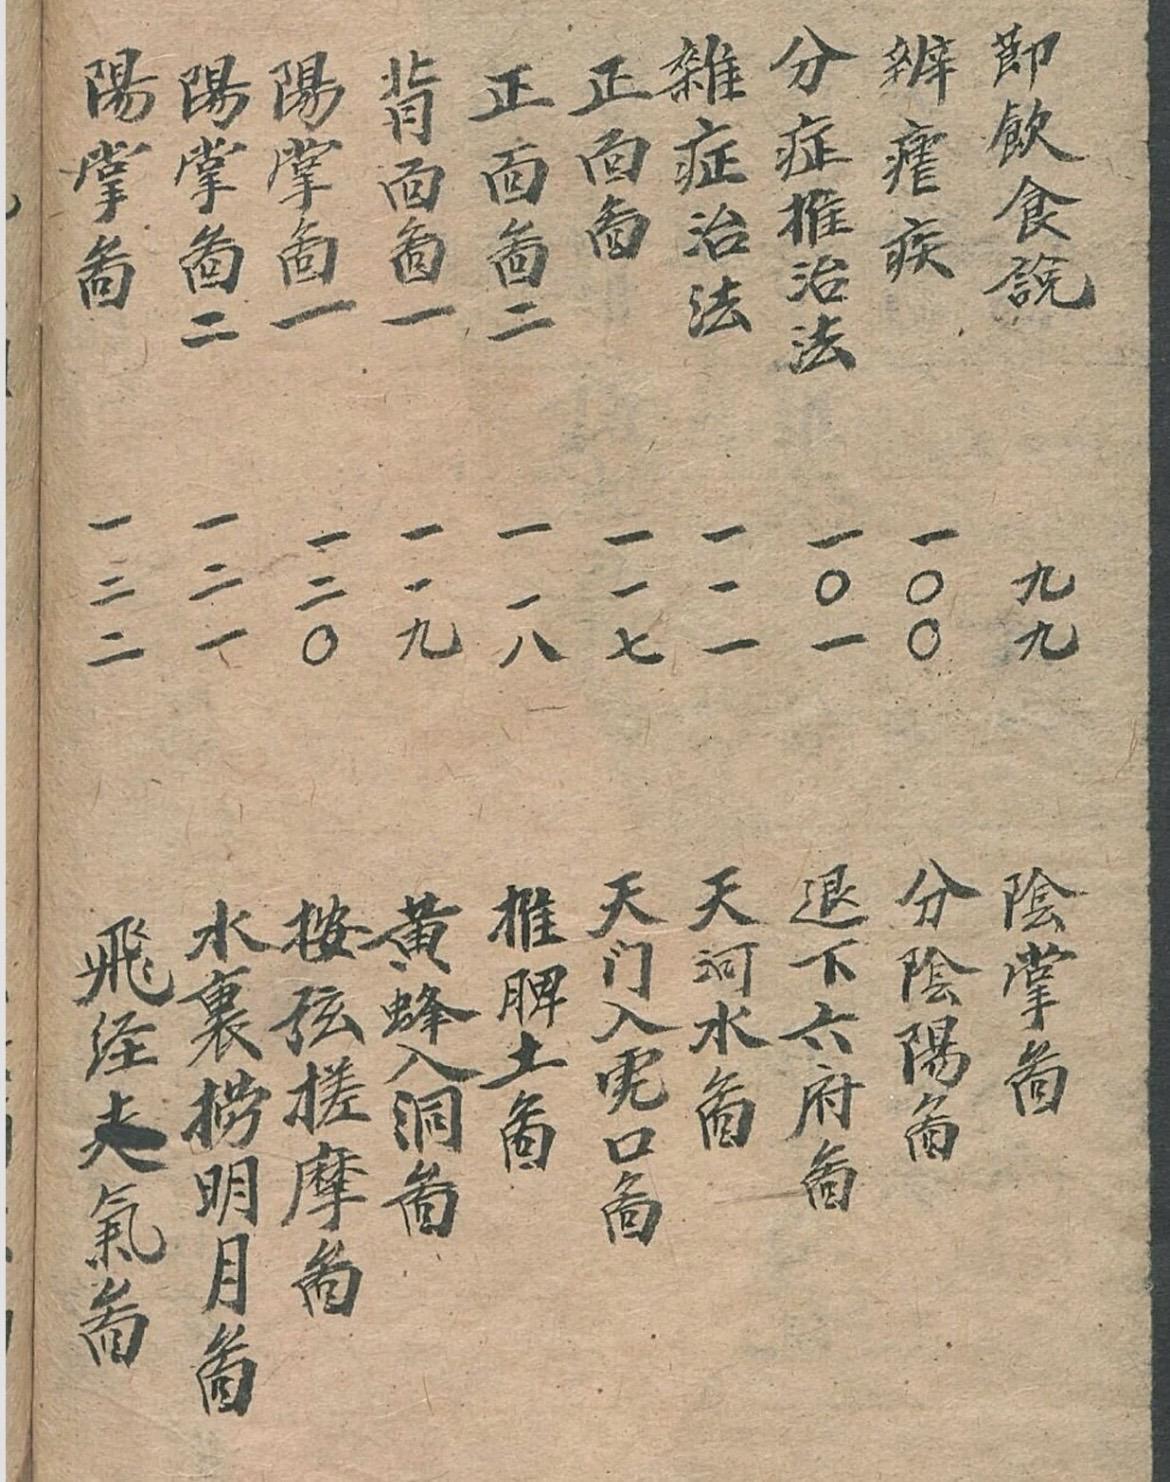 節飲食說 九九
辨瘧疾 一〇〇
分症推治法 一〇一
雜症治法 一一一
正面圖 一一七
正面圖二 一一八
背面圖一 一一九
陽掌圖一 一二〇
陽掌圖二 一二一
陽掌圖 一二二
陰掌圖
分陰陽圖
退下六府圖
天河水圖
天门入虎口圖
推脾土圖
黃蜂入洞圖
按弦搓摩圖
水裏捞明月圖
飛经走氣圖